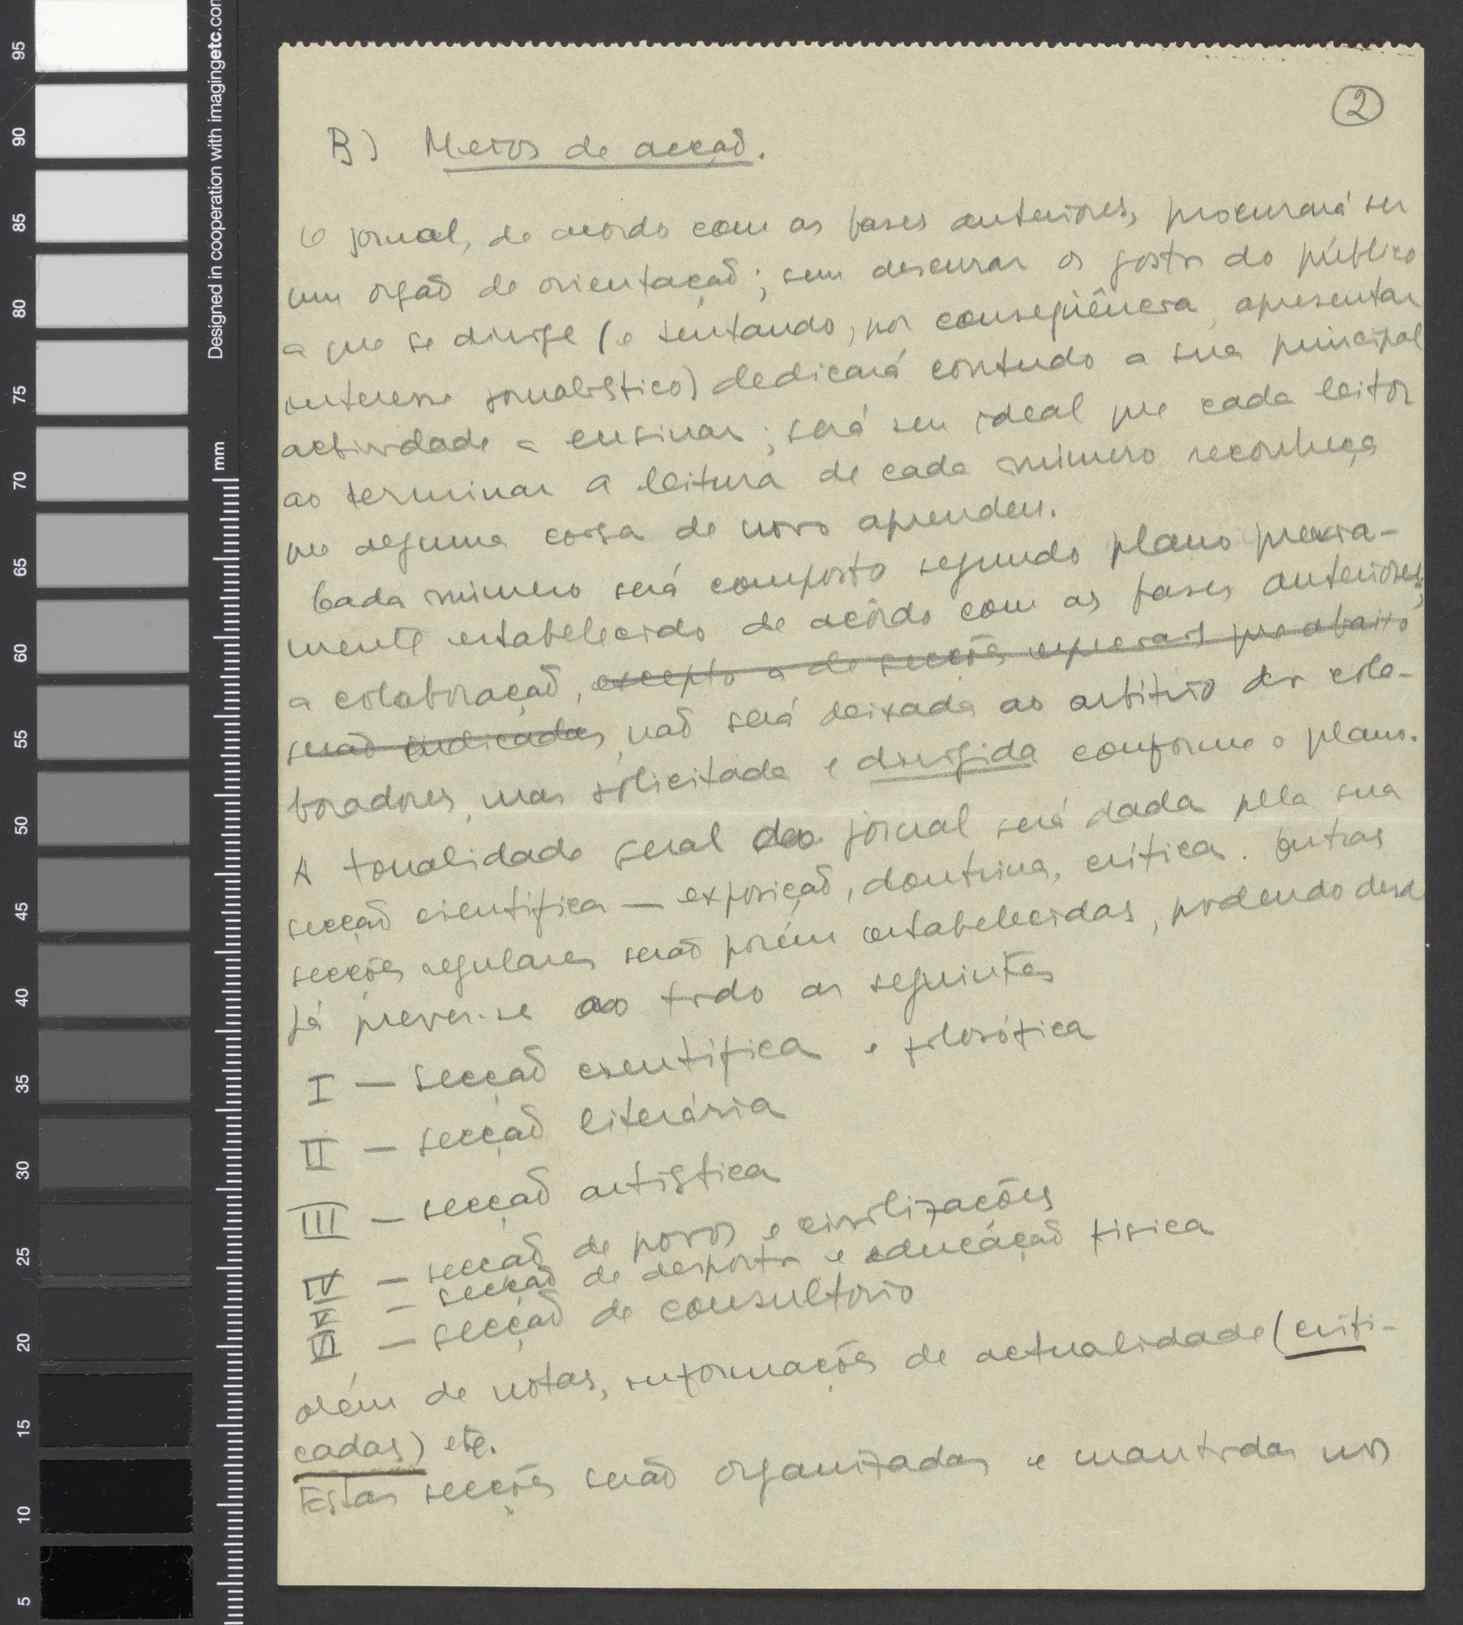 2
B) Meios de acção.
O jornal, de acordo com as bases anteriores, procurará ser
um orgão de orientação; sem descurar os gostos do público
a que se dirige (e tentando, por conseqüência, apresentar
interesse jornalistico) dedicará contudo a sua principal
actividade a ensinar; será seu ideal que cada leitor
ao terminar a leitura de cada número reconheça
que alguma coisa de novo aprendeu.
Cada número será composto segundo plano previa-
mente estabelecido de acôrdo com as bases anteriores;
a colaboração, excepto a de secções especiais que abaixo
serão indicadas, não será deixada ao arbitrio dos cola-
boradores, mas solicitada e dirigida conforme o plano.
A tonalidade geral do jornal será dada pela sua
secção cientifica — exposição, doutrina, crítica. Outras
secções regulares serão porém estabelecidas, podendo desde
já prever-se ao todo as seguintes
I — secção cientifica e filosófica
II — secção literária
III — secção artistica
IV — secção de povos e civilizações
V — secção de desporto e educação fisica
VI — secção de consultorio
além de notas, informações de actualidade (criti-
cadas) etc.
Estas secções serão organizadas e mantidas nos
Designed in cooperation with imagingetc.com
mm
95
90
85
80
75
70
65
60
55
50
45
40
35
30
25
20
15
10
5